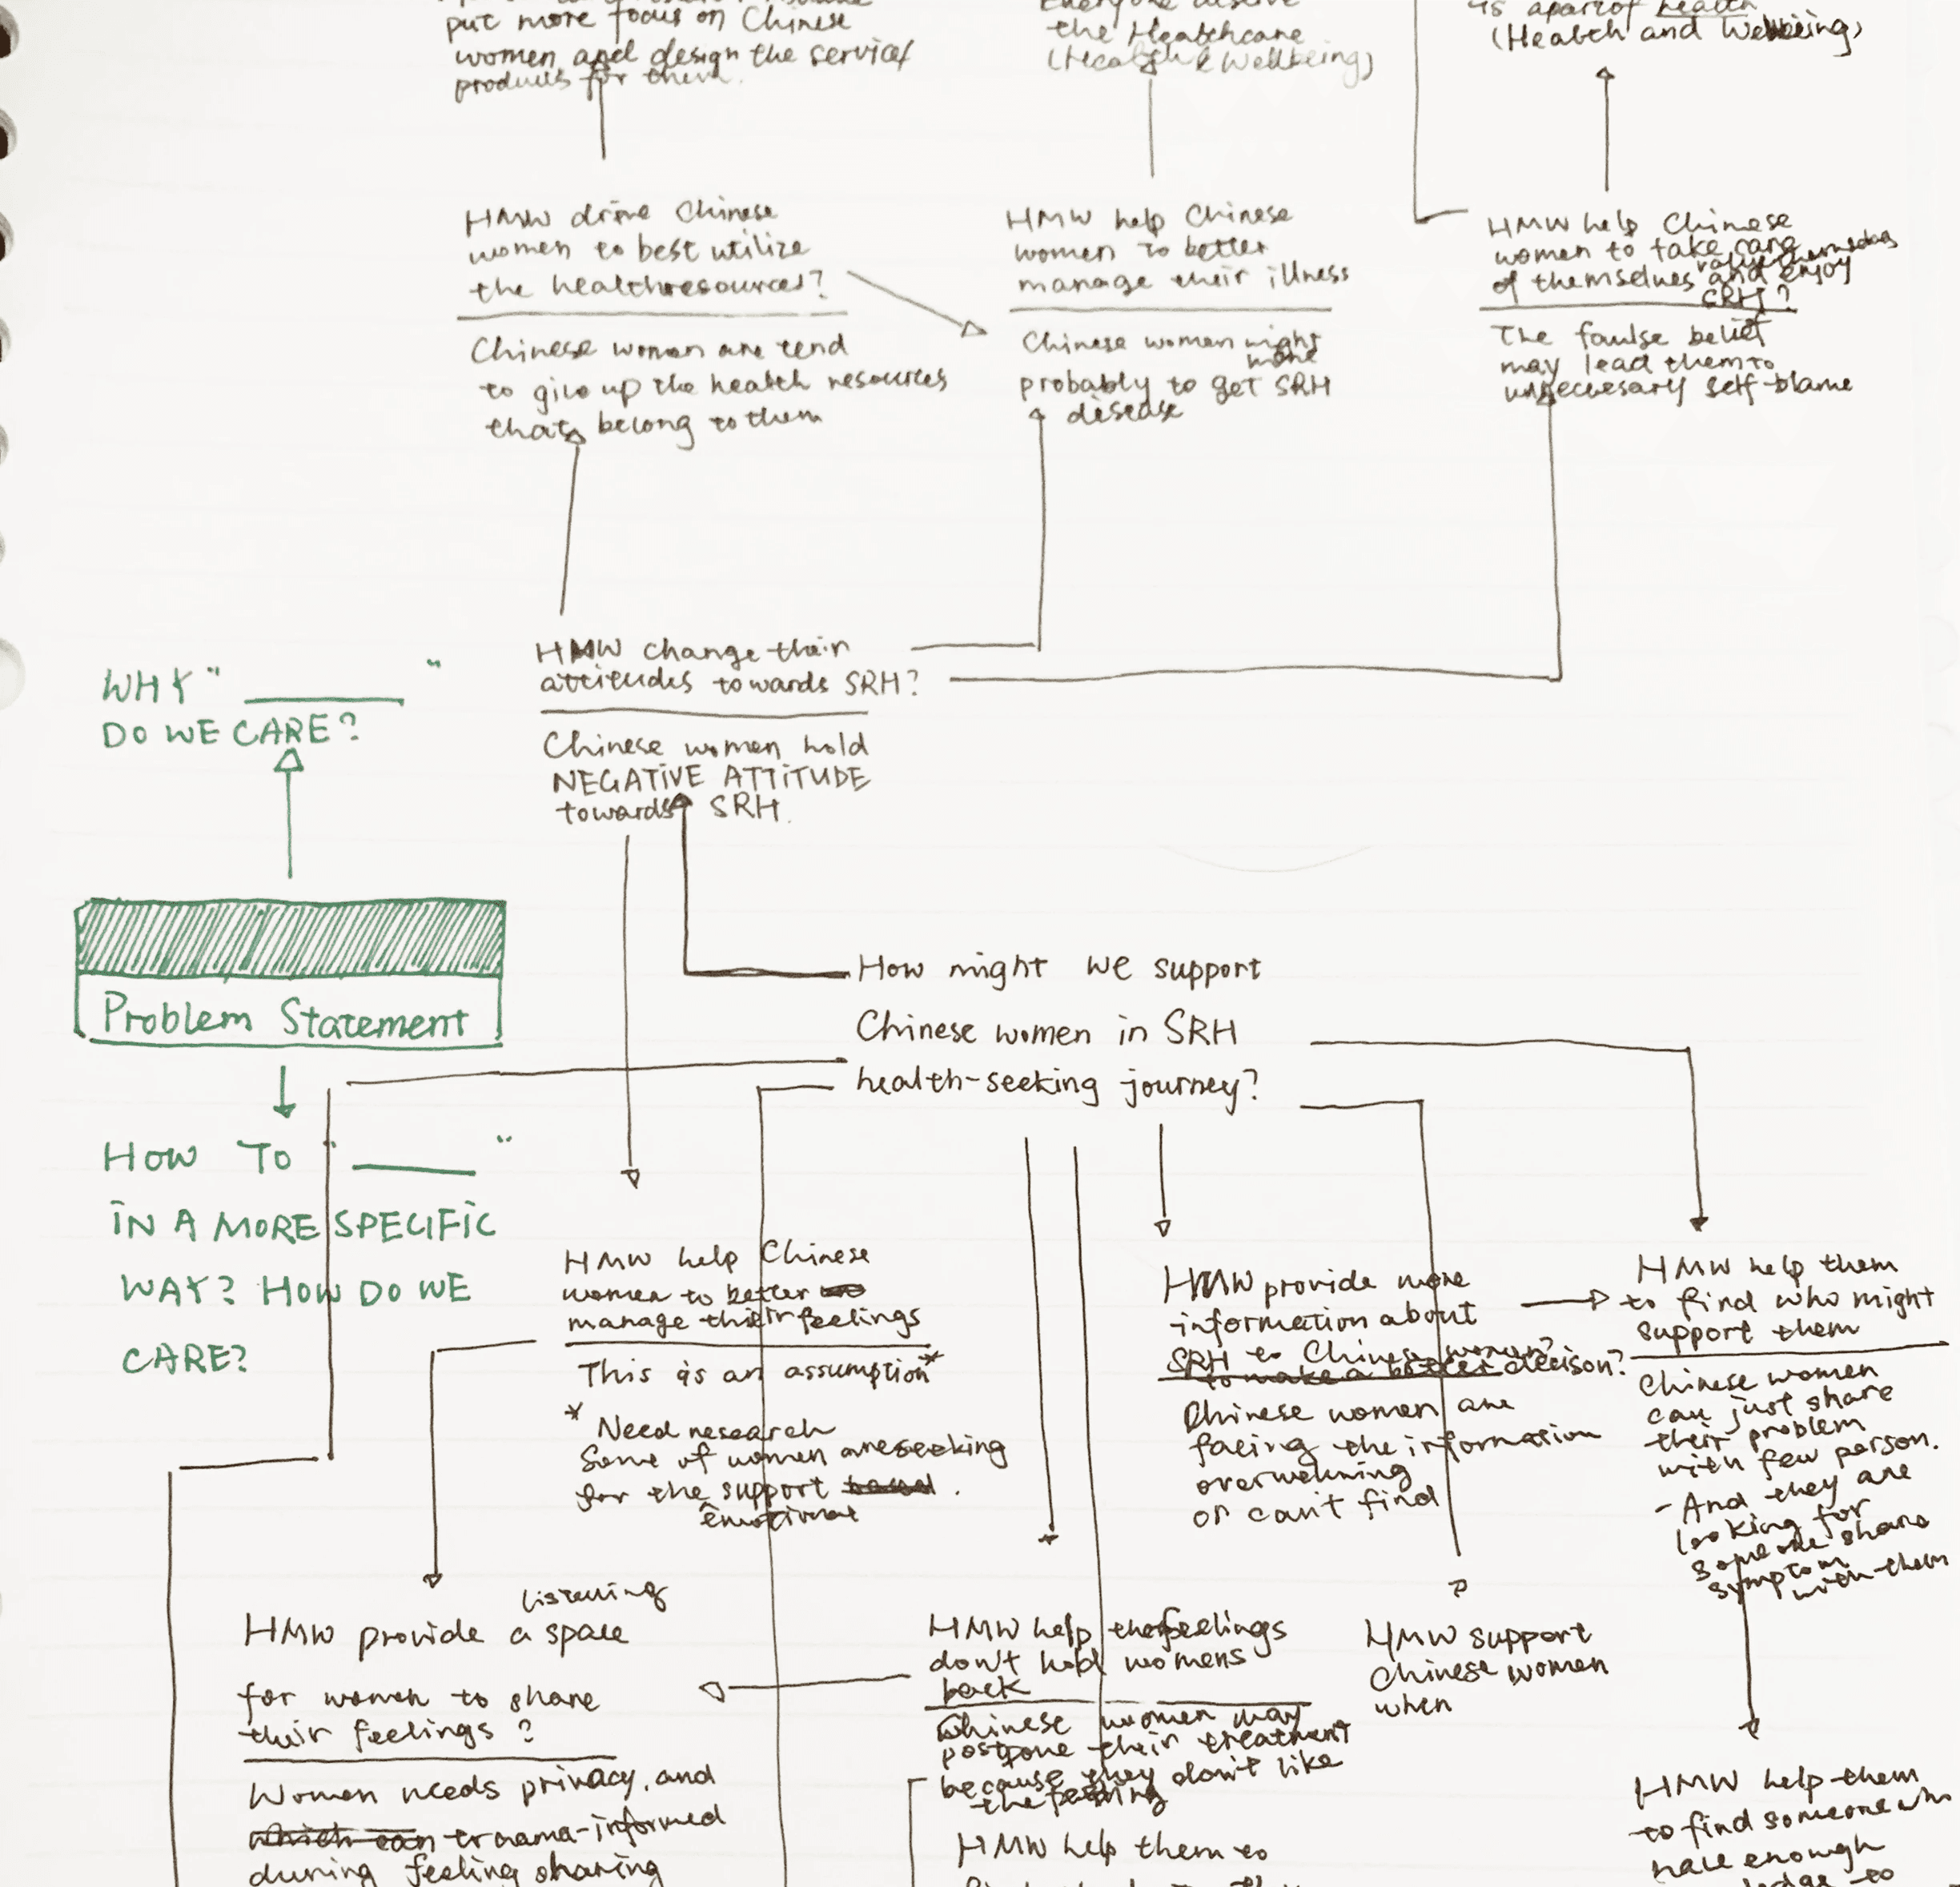 put more focus on Chinese
women and design the service/
products for them.
Everyone deserve
the Healthcare
(Health & Wellbeing)
is apart of health
(Health and Webeing)
HMW drive Chinese
women to best utilize
the health resources?
Chinese women are tend
to give up the health resources
that belong to them
HMW help Chinese
women to better
manage their illness
Chinese women might
more
probably to get SRH
disease
HMW help Chinese
women to take care
of themselves and enjoy
SRH?
The faulse belief
may lead them to
unnecessary self-blame
HMW change their
attitudes towards SRH?
Chinese women hold
NEGATIVE ATTITUDE
towards SRH.
WHY " "
DO WE CARE?
Problem Statement
HOW TO " "
IN A MORE SPECIFIC
WAY? HOW DO WE
CARE?
How might we support
Chinese women in SRH
health-seeking journey?
HMW help Chinese
women to better
manage their feelings
This is an assumption*
* Need research
Some of women are seeking
for the support .
emotional
HMW provide more
information about
SRH to Chinese women?
to make a better decison?
Chinese women are
facing the information
overwhelming
or can't find
HMW help them
to find who might
support them
Chinese women
can just share
their problem
with few person.
- And they are
looking for
someone share
symptom
with them
listening
HMW provide a space
for women to share
their feelings?
Women needs privacy, and
which can trauma-informed
during feeling sharing
HMW help the feelings
don't hold womens
back
Chinese women may
postpone their treatment
because they don't like
the feeling
HMW help them to
HMW support
Chinese women
when
HMW help them
to find someone who
have enough
to